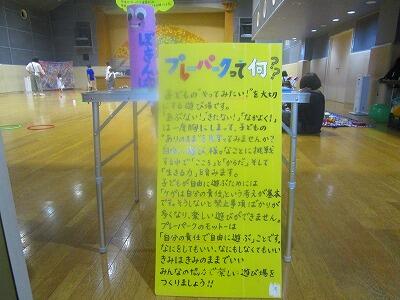 ぼきん
プレーパークって何??
子どもの"やってみたい!"を大切
にする遊び場です。
"あぶない!、きたない!、なかよく!"
は一度胸にしまって、子どもの
"ありのまま"を見守ってみませんか?
自由に遊び、様々なことに挑戦
する中で「こころ」と「からだ」そして
「生きる力」を育みます。
子どもが自由に遊ぶためには
「ケガは自分の責任」という考えが基本
です。そうしないと禁止事項ばかりが
多くなり、楽しい遊びができません。
プレーパークのモットーは
「自分の責任で自由に遊ぶ」ことです。
なにをしてもいい、なにもしなくてもいい
きみはきみのままでいい
みんなの協力で楽しい遊び場を
つくりましょう!!